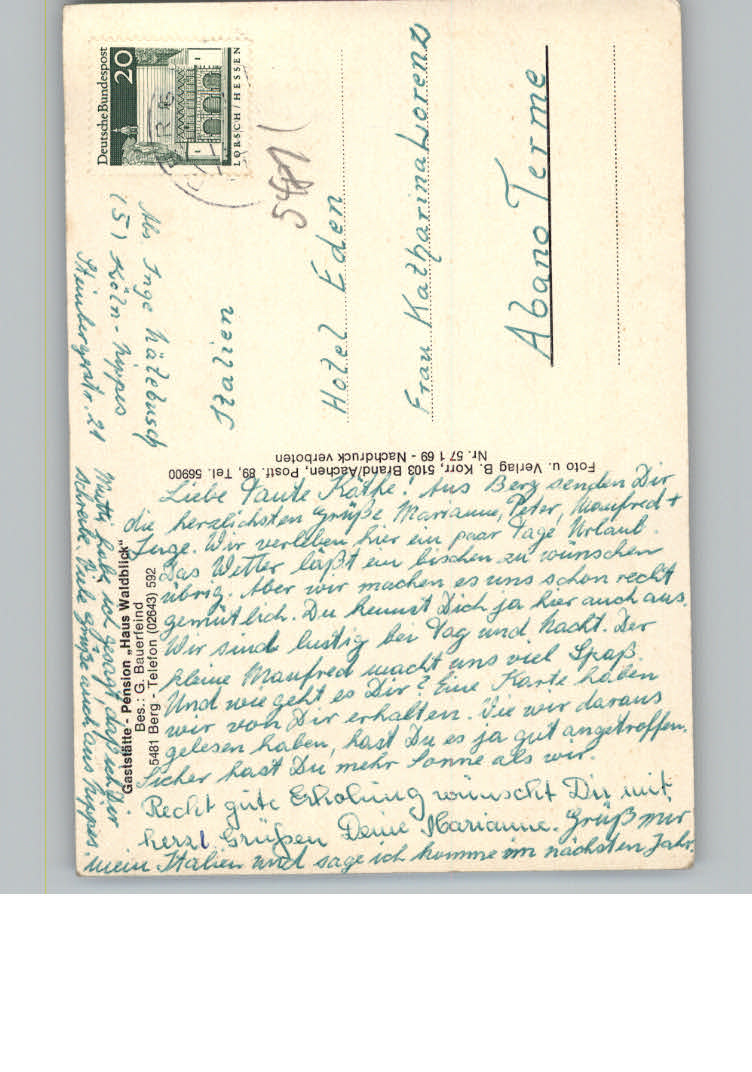 Deutsche Bundespost
20
LORSCH/HESSEN
5481
Abs Inge Kätebusch
(5) Köln-Nippes
Steinbergerstr. 21
Italien
Hotel Eden
Frau Katharina Lorenz
Abano Terme
Foto u. Verlag B. Korr, 5103 Brand/Aachen, Postf. 89, Tel. 56900
Nr. 57 1 69 - Nachdruck verboten
Gaststätte - Pension „Haus Waldblick"
Bes.: G. Bauerfeind
5481 Berg - Telefon (02643) 592
Liebe Tante Käthe! Aus Berg senden Dir
die herzlichsten Grüße Marianne, Peter, Manfred +
Inge. Wir verleben hier ein paar Tage Urlaub.
Das Wetter läßt ein bischen zu wünschen
übrig. Aber wir machen es uns schon recht
gemütlich. Du kennst Dich ja hier auch aus.
Wir sind lustig bei Tag und Nacht. Der
kleine Manfred macht uns viel Spaß.
Und wie geht es Dir? Eine Karte haben
wir von Dir erhalten. Wie wir daraus
gelesen haben, hast Du es ja gut angetroffen.
Sicher hast Du mehr Sonne als wir.
Recht gute Erholung wünscht Dir mit
herzl Grüßen Deine Marianne. Grüß mir
mein Italien und sage ich komme im nächsten Jahr.
Mutti habe ich gesagt, daß ich Dir
schreibe. Viele Grüße auch aus Nippes